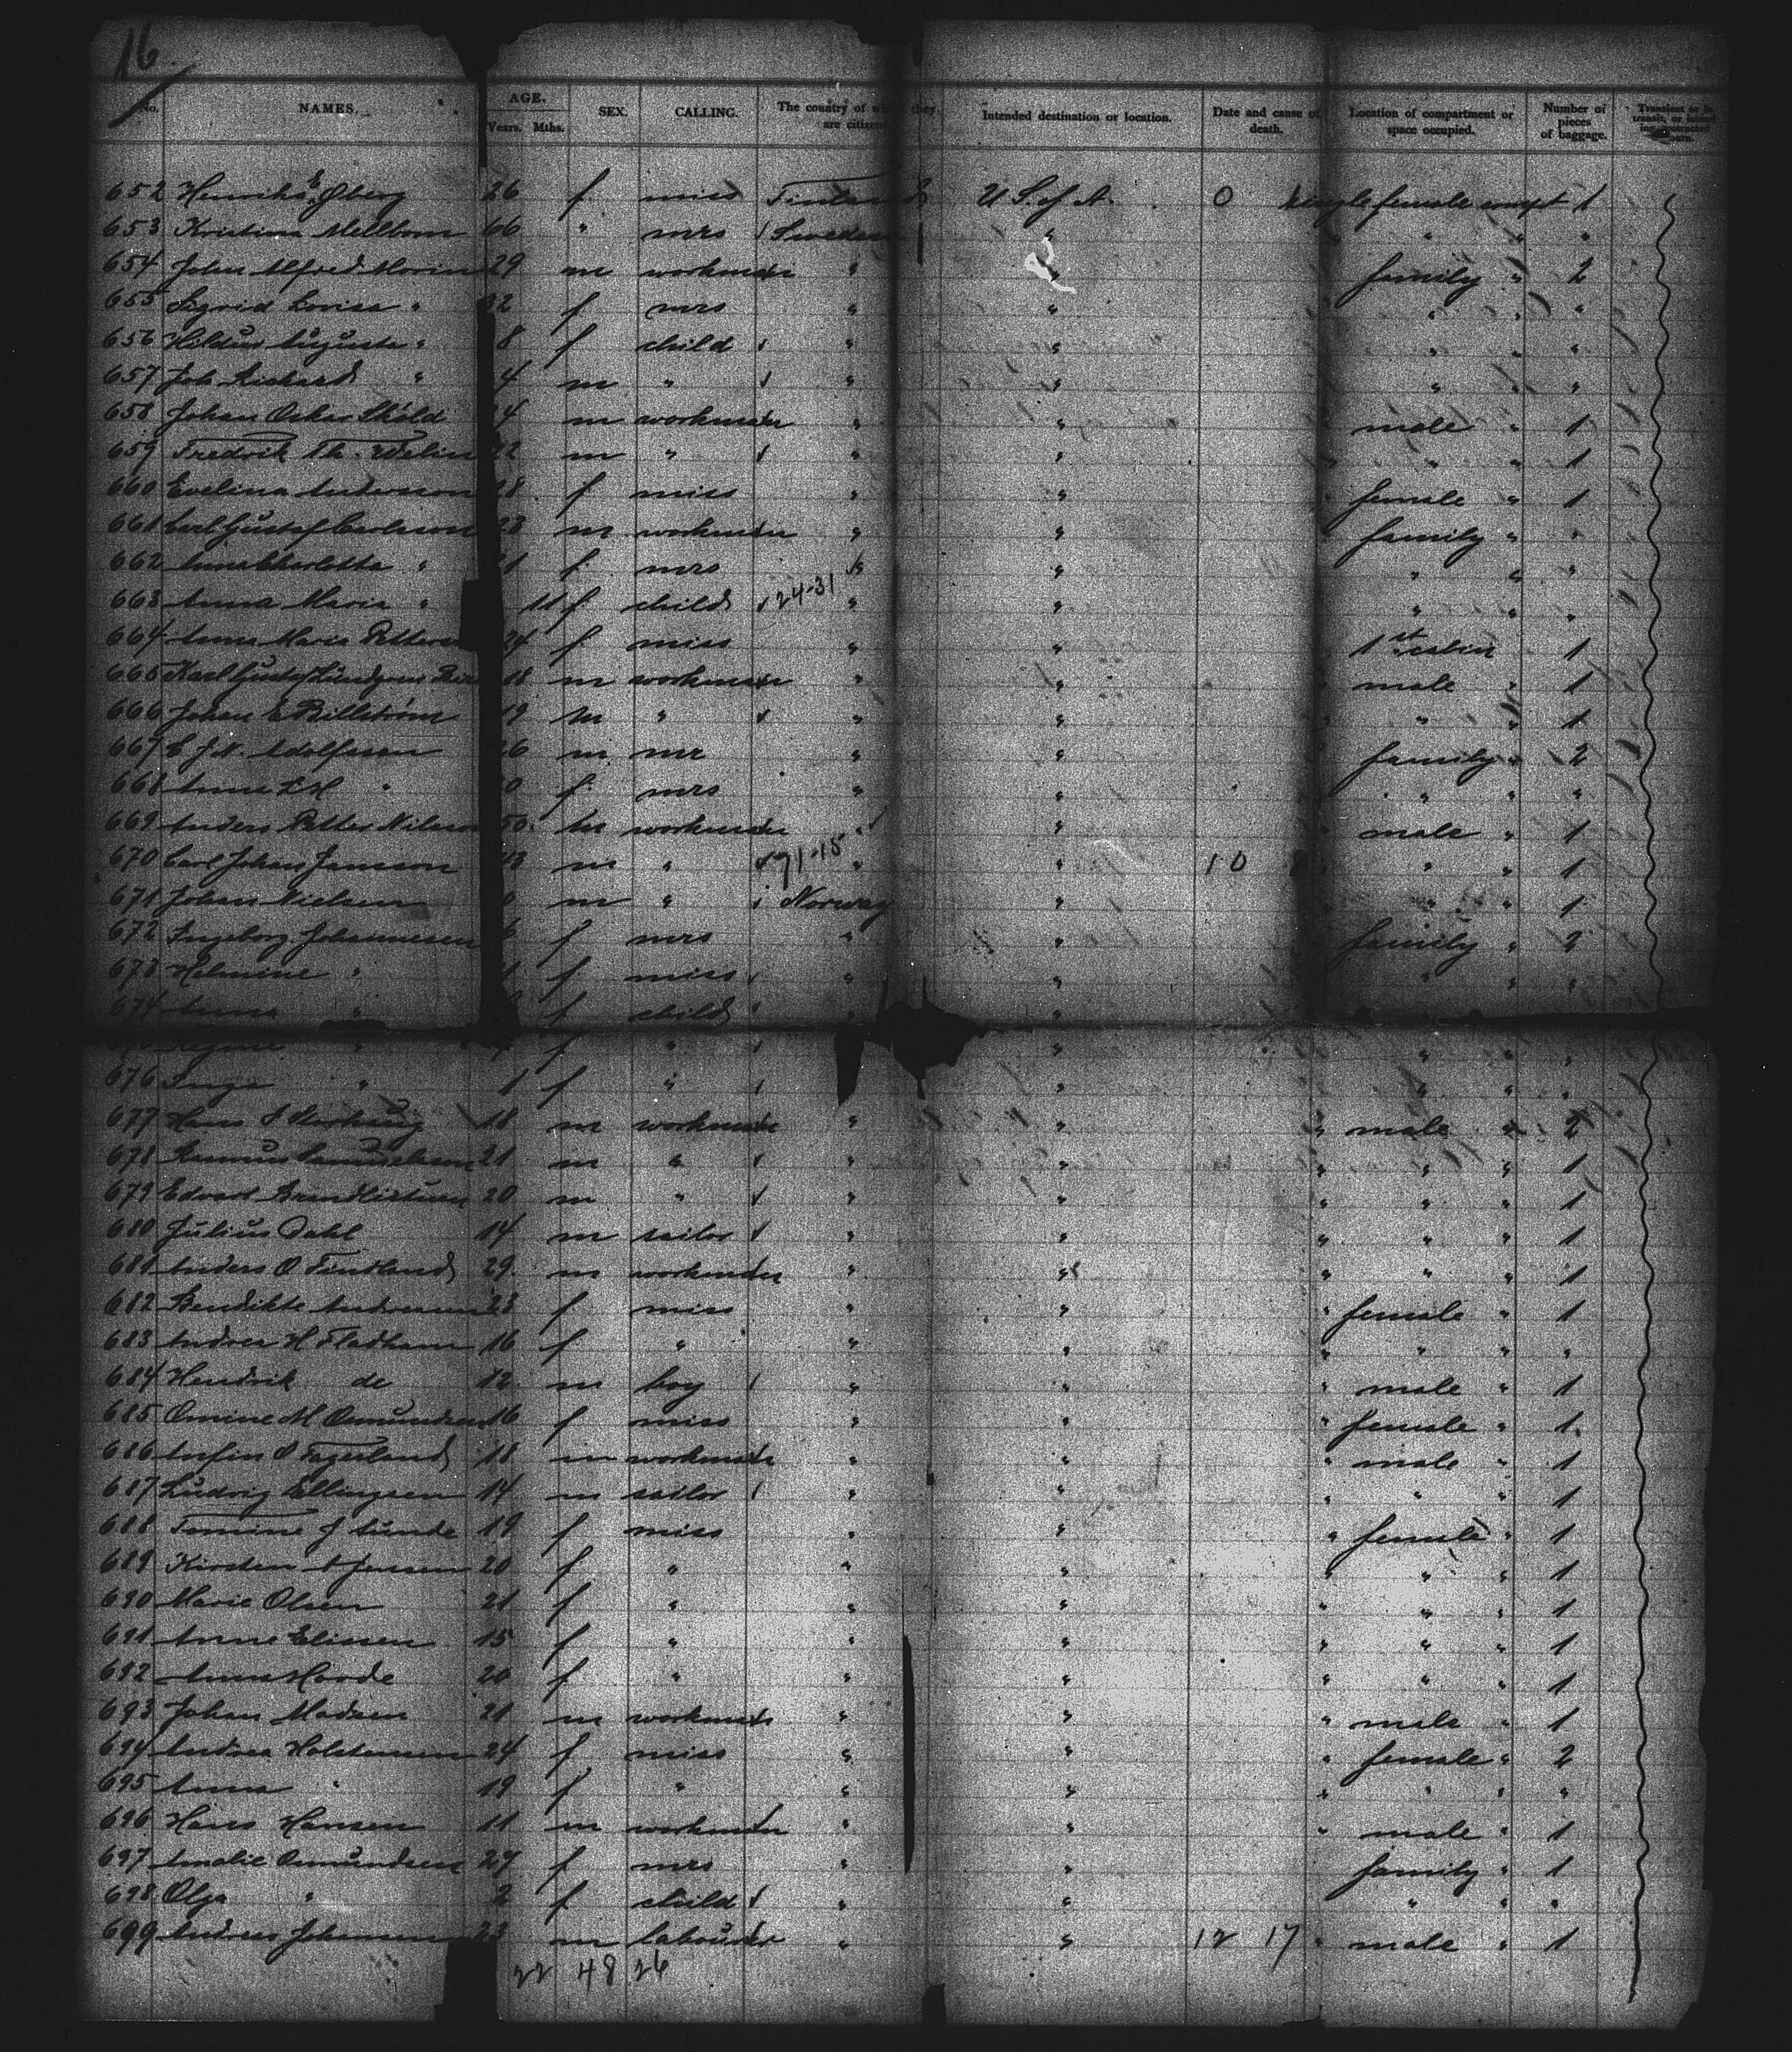 16.
No. NAMES. AGE. Years. Mths. SEX. CALLING. The country of they are citizen Intended destination or location. Date and cause of death. Location of compartment or space occupied. Number of pieces of baggage. Transient or in transit, or
652 Henrika E Øberg 26 f miss Finland U S. of A. 0 single female compt 1
653 Kristina Mellbom 66 " mrs Sweden " " " "
654 John Alfred Morin 29 m workman " " family " 2
655 Sigrid Lovisa " 2 f mrs " " " " "
656 Hildur Augusta " 8 f child " " " " "
657 Joh Richard " 4 m " " " " " "
658 Johan Oskar Sköld 4 m workman " " male " 1
659 Fredrik Th. Welin 2 m " " " " " 1
660 Evelina Andersson 8 f miss " " female " 1
661 Carl Gustaf Carlsson 23 m workman " " family " "
662 Anna Charlotta " 1 f mrs " " " " "
663 Anna Maria " 11 f child 24-31 " " " " "
664 Anna Maria Petters 24 f miss " " 1st cabin 1
665 Karl Gustaf Lindgren 18 m workman " " male " 1
666 Johan E Billström 19 m " " " " " 1
667 C J N. Adolfsson 6 m mr " " family " 2
668 Anna L " 0 f mrs " " " " "
669 Anders Petter Nilsson 50 m workman " " male " 1
670 Carl Johan Jansson 3 m " 71-15 " " 10 " " 1
671 Johan Nielsen m " Norway " " " 1
672 Ingeborg Johannesen f mrs " " family " 2
673 Helmine " 1 f miss " " " " "
674 Anna " f child " "
" f " " " " "
676 Inga " 1 f " " " " "
677 Hans 18 m workman " " " male " 2
678 Samuelsen 21 m " " " " " " 1
679 Edvard 20 m " " " " " " 1
680 Julius Dahl 14 m sailor " " " " " 1
681 Anders O Tintland 29 m workman " " " " " 1
682 Bendikte Andersen 23 f miss " " " female " 1
683 Andrea H Fladham 16 f " " " " " " "
684 Hendrik do 12 m boy " " " male " 1
685 Omine M Osmundsen 16 f miss " " " female " 1
686 Fagerland 18 m workman " " " male " 1
687 Ludvig Ellingsen 14 m sailor " " " " " 1
688 Tomine J Aunde 19 f miss " " " female " 1
689 Kirsten A Jensen 20 f " " " " " " 1
690 Marie Olsen 21 f " " " " " " 1
691 Anne Eliesen 15 f " " " " " " 1
692 Anna 20 f " " " " " " 1
693 Johan Madsen 21 m workman " " " male " 1
694 Andrea Holstensen 24 f miss " " " female " 2
695 Anna " 19 f " " " " " " "
696 Hans Hansen 11 m workman " " " male " 1
697 Amalie Osmundsen 27 f mrs " " family " 1
698 Olga " 2 f child " " " " "
699 Andreas Johansen 23 m labourer " " 12 17 " male " 1
22 48 26